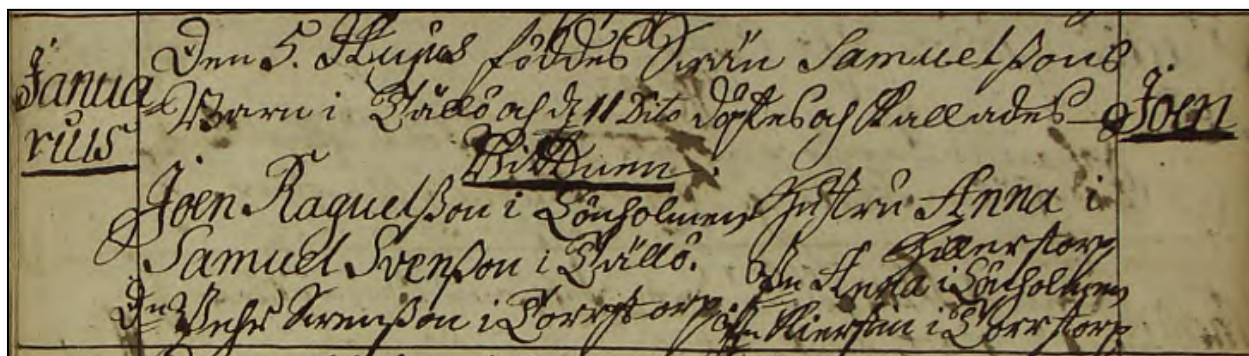 Januarius
Den 5. Hujus föddes Swän Samuelssons
Barn i Tållö och d 11 Dito döptes och Kallades Joen
Vittnen
Joen Raguelsson i Lönholmen Hustru Anna i Hillerstorp
Samuel Svensson i Tållö. Pn Anna i Lönholmen
Dn Pehr Svensson i Torrstorp Pn Kierstin i Torrstorp